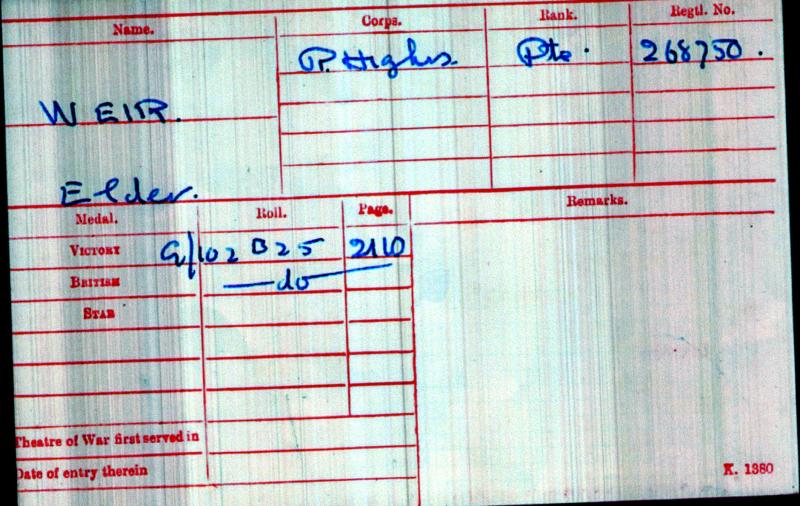 Name. Corps. Rank. Regtl. No.
R. Highrs. Pte. 268750.
WEIR.
Elder.
Medal. Roll. Page. Remarks.
VICTORY G/102 B25 2110
BRITISH —do—
STAR
Theatre of War first served in
Date of entry therein
K. 1380